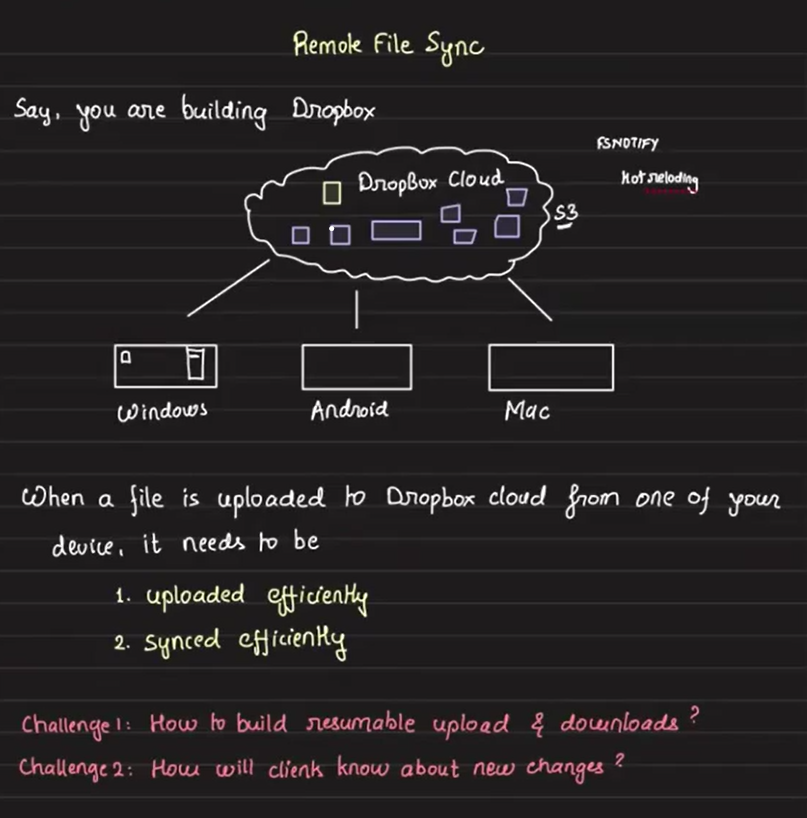 Remote File Sync
Say, you are building Dropbox
FSNOTIFY
Hot reloding
DropBox Cloud
S3
Windows
Android
Mac
When a file is uploaded to Dropbox cloud from one of your
device, it needs to be
1. uploaded efficiently
2. synced efficiently
Challenge 1: How to build resumable upload & downloads?
Challenge 2: How will clients know about new changes?